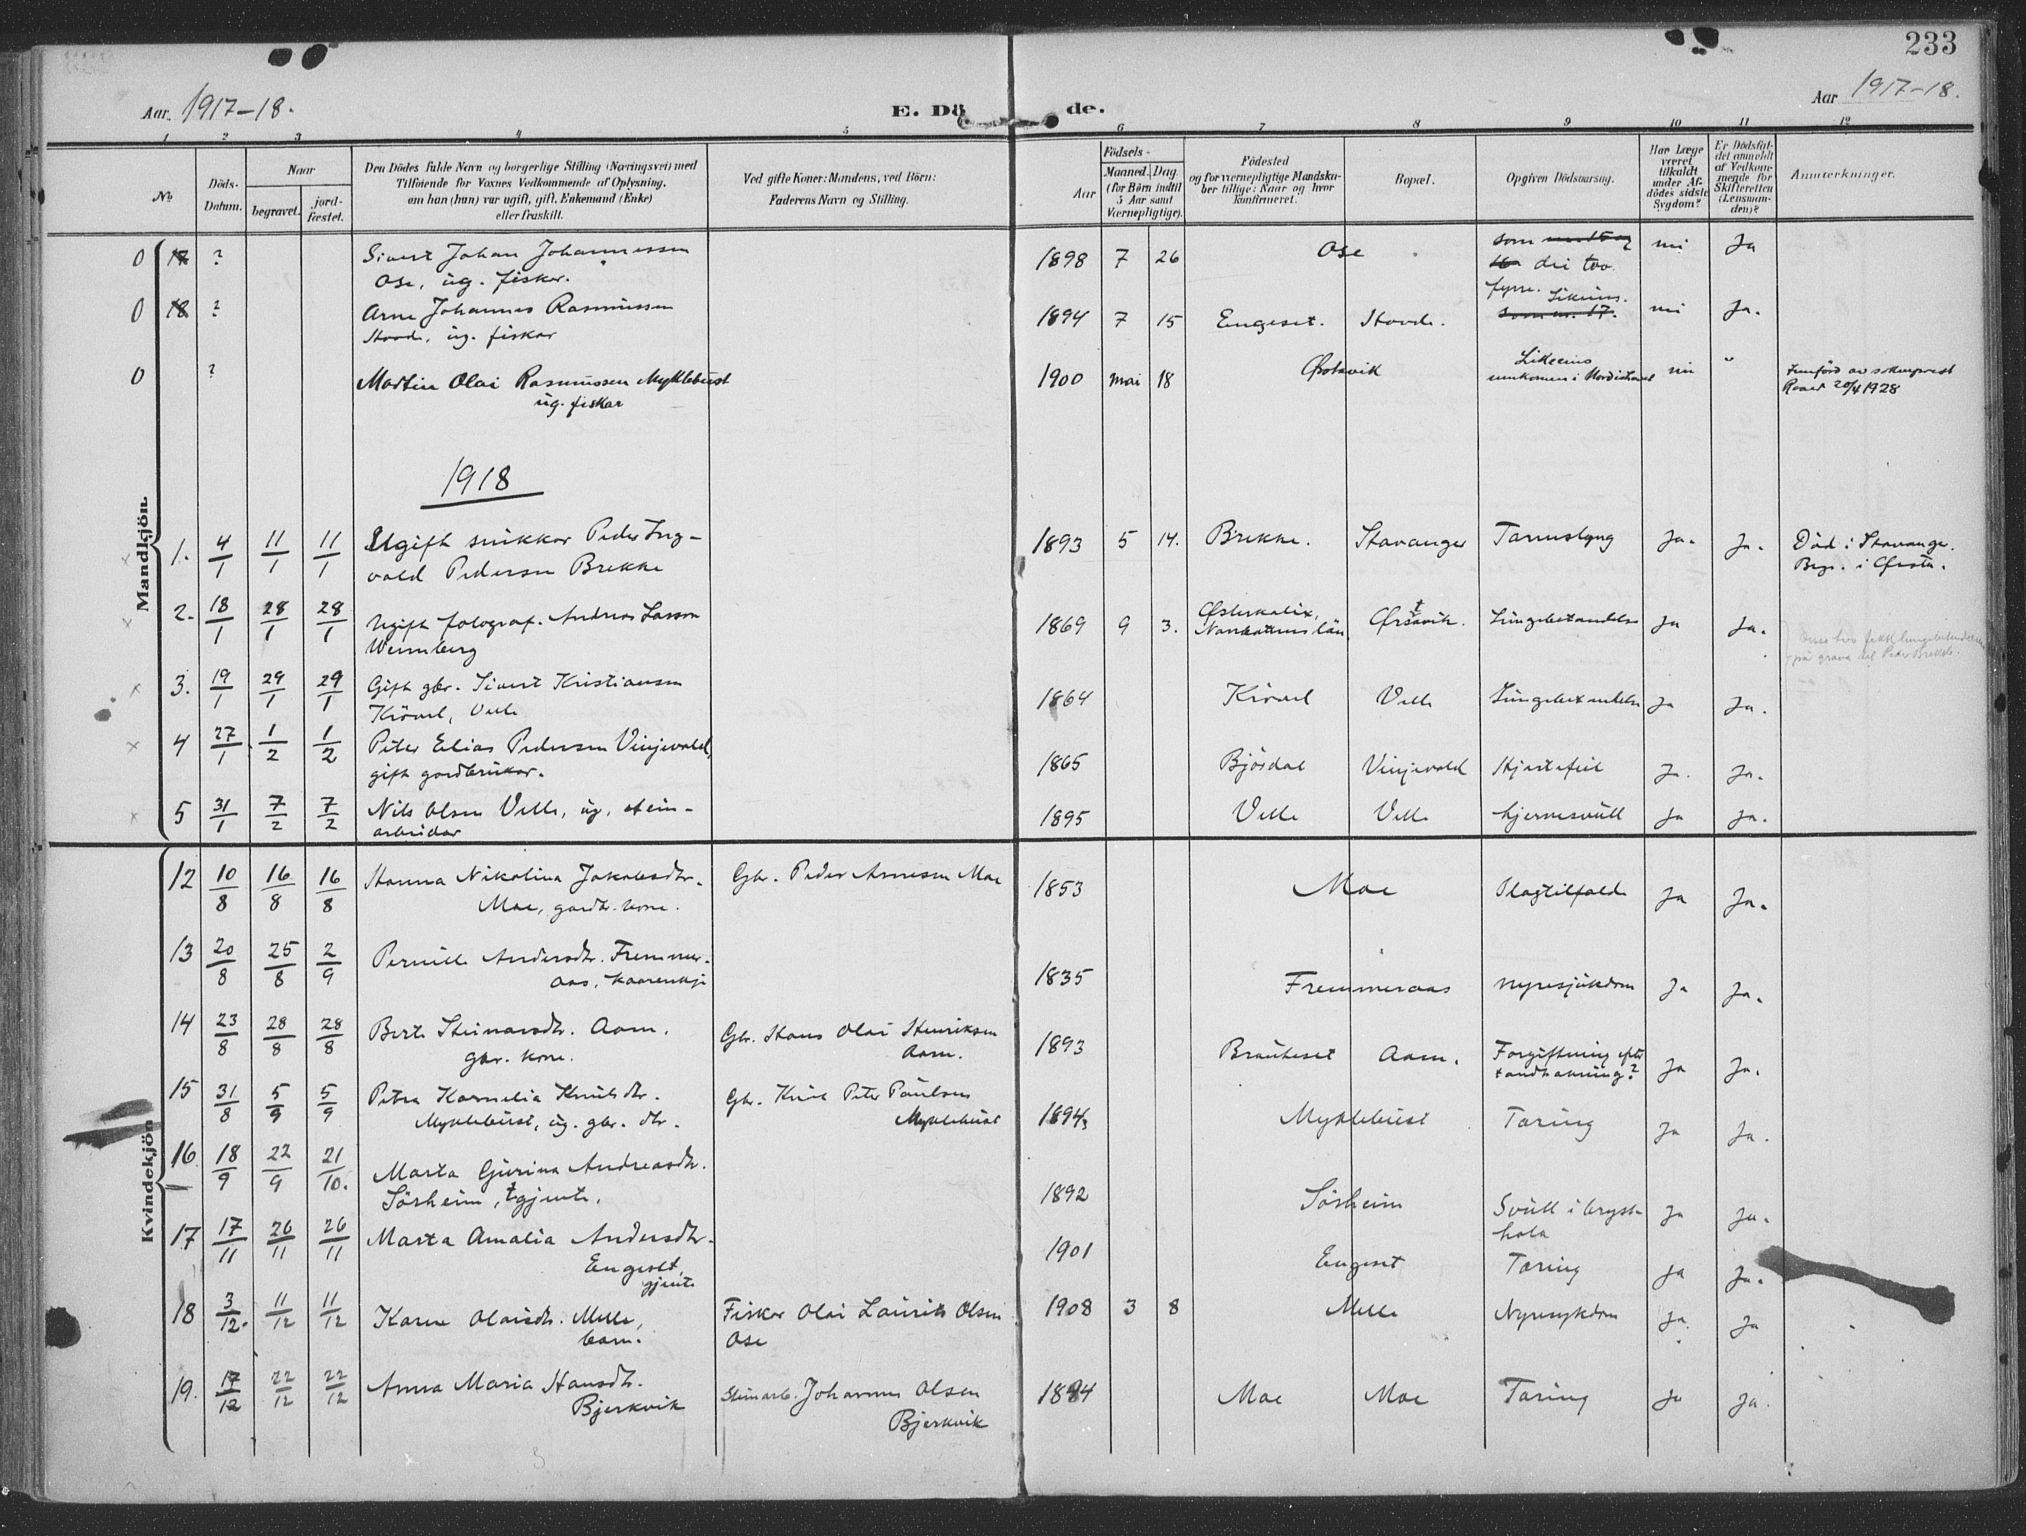 233
Aar. 1917-18.
E. Dö de.
Aar 1917-18.
1 2 3 4 5 6 7 8 9 10 11 12
No
Döds-
Datum.
Naar
begravet.
jord-
fæstet.
Den Dödes fulde Navn og borgerlige Stilling (Næringsvei) med
Tilföiende for Voxnes Vedkommende af Oplysning,
om han (hun) var ugift, gift, Enkemand (Enke)
eller fraskilt.
Ved gifte Koner: Mandens, ved Börn:
Faderens Navn og Stilling.
Födsels-
Aar
Maaned. Dag.
(for Börn indtil
5 Aar samt
Værnepligtige).
Födested
og for værnepligtige Mandska-
ber tillige: Naar og hvor
konfirmeret.
Bopæl.
Opgiven Dödsaarsag.
Har Læge
været
tilkaldt
under Af-
dödes sidste
Sygdom?
Er Dödsfal-
det anmeldt
af Vedkom-
mende for
Skifteretten
(Lensman-
den)?
Anmærkninger.
Mandkjön.
0 17 ? Sivert Johan Johannessen
Ose, ug. fisker.
1898 7 26 Ose som
dei tvo
fyrre. Ja
0 18 ? Arne Johannes Rasmussen
ug. fiskar
1894 7 15 Engeset.
som nr. 17. Ja.
0 ? Martin Olai Rasmussen Myklebust
ug. fiskar
1900 mai 18 Ørstavik
umkomen i " av sokneprest
20/4 1928
1918
1. 4/1 11/1 11/1 Ugift snikkar Peder Ing-
vald Pedersen Brekke
1893 5 14. Brekke. Stavanger Tarmslyng Ja. Ja. Død i Stavanger.
Begr. i Ørsta.
2. 18/1 28/1 28/1 Ugift fotograf. Andreas Larson
Wennberg
1869 9 3. Østerkalix, Ørstavik. Lungebetændelse Ja Ja.
på grava til Peder Brekke.
3. 19/1 29/1 29/1 Gift gbr. Sivert Kristiansen
Velle
1864 Velle Lungebetændelse Ja Ja.
4 27/1 1/2 1/2 Peter Elias Pedersen Vinjevold,
gift gardbrukar.
1865 Bjørdal Vinjevold Hjartefeil Ja. Ja.
5 31/1 7/2 7/2 Nils Olsen Velle, ug. stein-
arbeidar
1895 Velle Velle hjernesvull Ja Ja.
Kvindekjön
12 10/8 16/8 16/8 Hanna Nikolina Jakobsdtr.
Moe, gardbr. kone.
Gbr. Peder Arnesen Moe
1853 Moe Slagtilfelde Ja Ja.
13 20/8 25/8 2/9 Pernille Andersdtr. Fremmer-
aas,
1835 Fremmeraas nyresjukdom Ja Ja.
14 23/8 28/8 28/8 Berte Steinarsdtr. Aam.
gbr. kone.
Gbr. Hans Olai Henriksen
Aam.
1893 Aam. Forgiftning efter
tandtrekning? Ja Ja.
15 31/8 5/9 5/9 Petra Kornelia Knutsdtr.
Myklebust, ug. gbr. dtr.
Gbr. Knut Peter Paulsen
Myklebust
1894 Myklebust Tæring Ja Ja.
16 18/9 22/9 21/10. Marta Gurina Andreasdtr.
Sörheim, gjente.
1892 Sörheim Svull i bryst-
hola Ja Ja.
17 17/11 26/11 26/11 Marta Amalia Andersdtr.
Engeset,
gjente
1901 Engeset Tæring Ja Ja.
18 3/12. 11/12 11/12 Karen Olaisdtr. Melle,
barn.
Fiskar Olai Laurits Olsen
Ose
1908 3 8 Melle Nyresykdom Ja. Ja
19. 17/12 22/12 22/12 Anna Maria Hansdtr.
Bjerkvik
Steinarb. Johannes Olsen
Bjerkvik
Moe Moe Tæring Ja Ja.